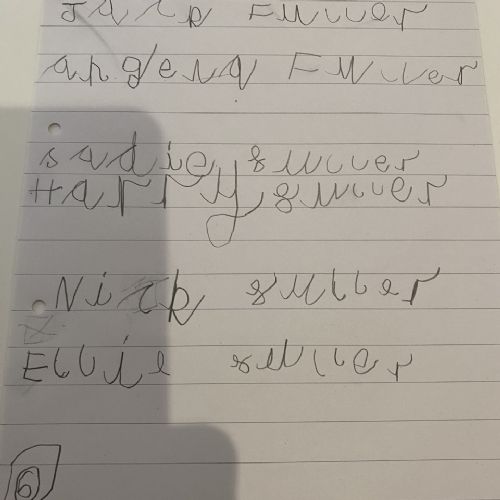 Jack Fuller
angela Fuller
sadie fuller
Harry fuller
Nick fuller
Ellie fuller
6